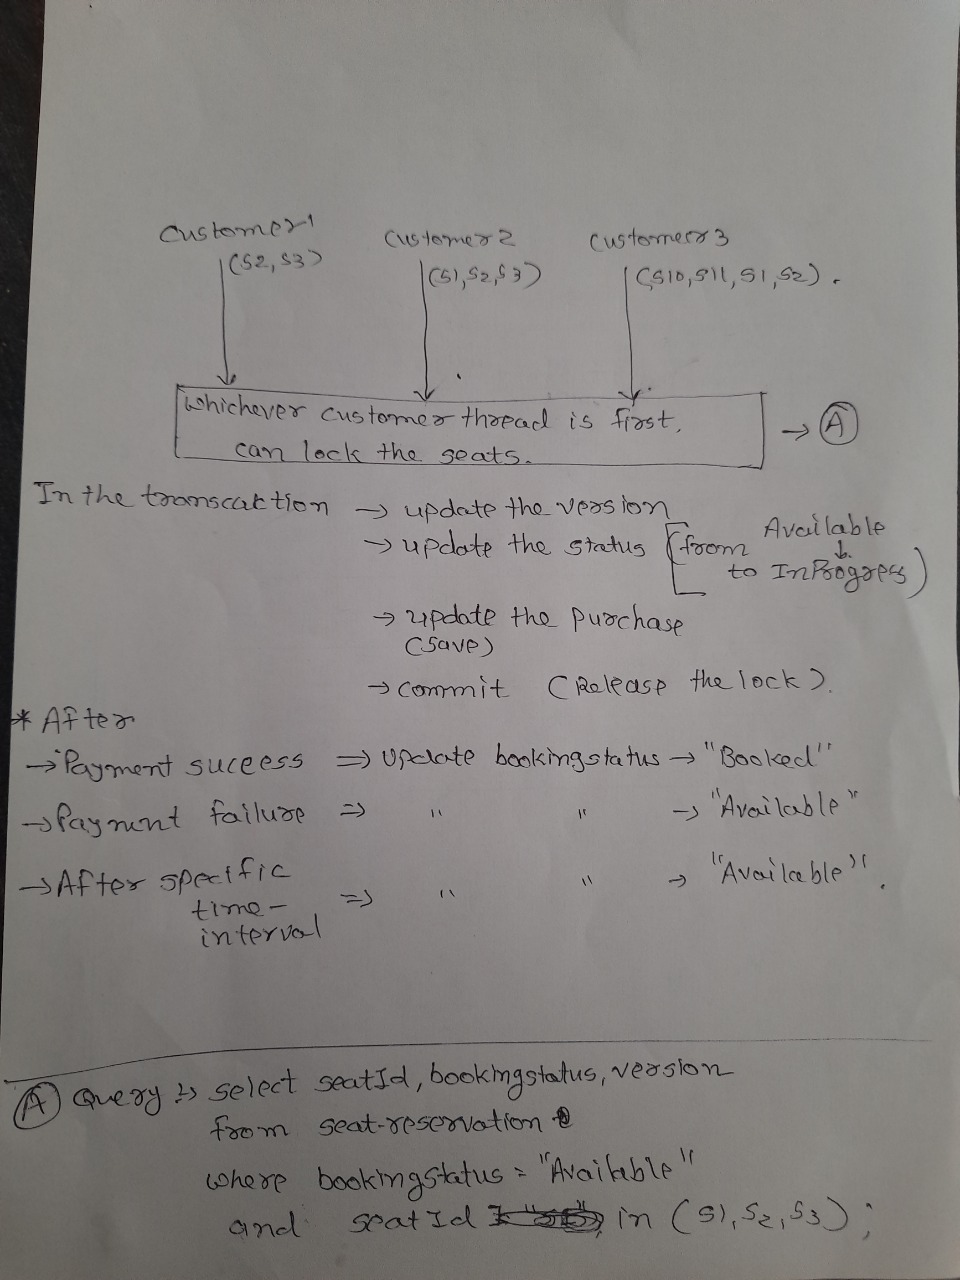 Customer1 Customer2 Customer3
(S2, S3) (S1, S2, S3) (S10, S11, S1, S2).
Whichever customer thread is first,
can lock the seats. → A
In the transcaktion → update the version
→ update the status [from Available
↓
to InProgress)
→ update the purchase
(Save)
→ commit (Release the lock).
* After
→ Payment sucess ⇒ Update bookingstatus → "Booked"
→ Paymnt failure ⇒ " " → "Available"
→ After specific
time-
interval ⇒ " " → "Available".
A Query :→ select seatId, bookingstatus, version
from seat-reservation
where bookingstatus = "Available"
and seatId in (S1, S2, S3);